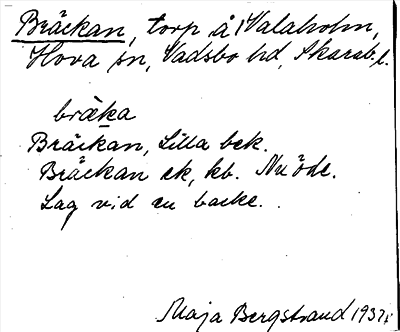 Bräckan, torp å Valaholm,
Hova sn, Vadsbo hd, Skarab. l.
bräka
Bräckan, Lilla bek.
Bräckan ek, kb. Nu öde.
Låg vid en backe.
Maja Bergstrand 1937